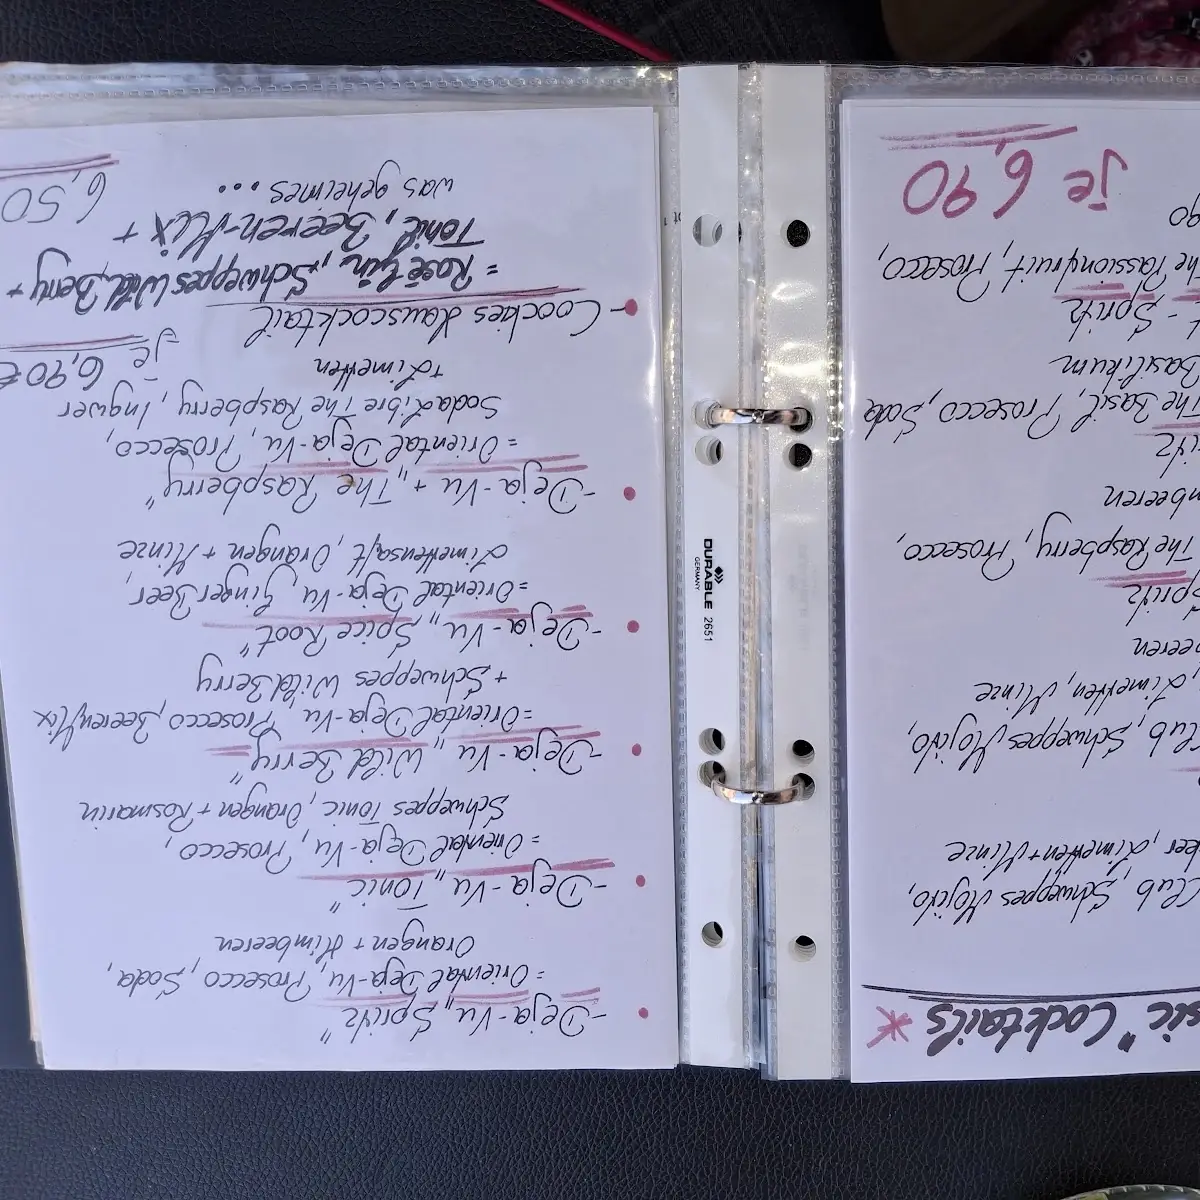 sic" Cocktails *
Club, Schweppes Mojito,
ker, Limetten + Minze
Club, Schweppes Mojito,
, Limetten, Minze
eeren
pritz
The Raspberry, Prosecco,
mbeeren
ritz
The Basil, Prosecco, Soda
Basilikum
t - Spritz
he Passionfruit, Prosecco,
je 6,90
DURABLE 2651
GERMANY
- Deja-Vu „Spritz"
= Oriental Deja-Vu, Prosecco, Soda,
Orangen + Himbeeren
- Deja-Vu „Tonic"
= Oriental Deja-Vu, Prosecco,
Schweppes Tonic, Orangen + Rosmarin
- Deja-Vu „Wild Berry"
= Oriental Deja-Vu, Prosecco, BeerenMix
+ Schweppes Wild Berry
- Deja-Vu „Spice Root"
= Oriental Deja-Vu, Ginger Beer
Limettensaft, Orangen + Minze
- Deja-Vu + „The Raspberry"
= Oriental Deja-Vu, Prosecco,
Soda Libre The Raspberry, Ingwer
+ Limetten
je 6,90 €
- Coockies Hauscocktail
= Rosé Gin, Schweppes Wild Berry +
Tonic, Beeren-Mix +
was geheimes...
6,50